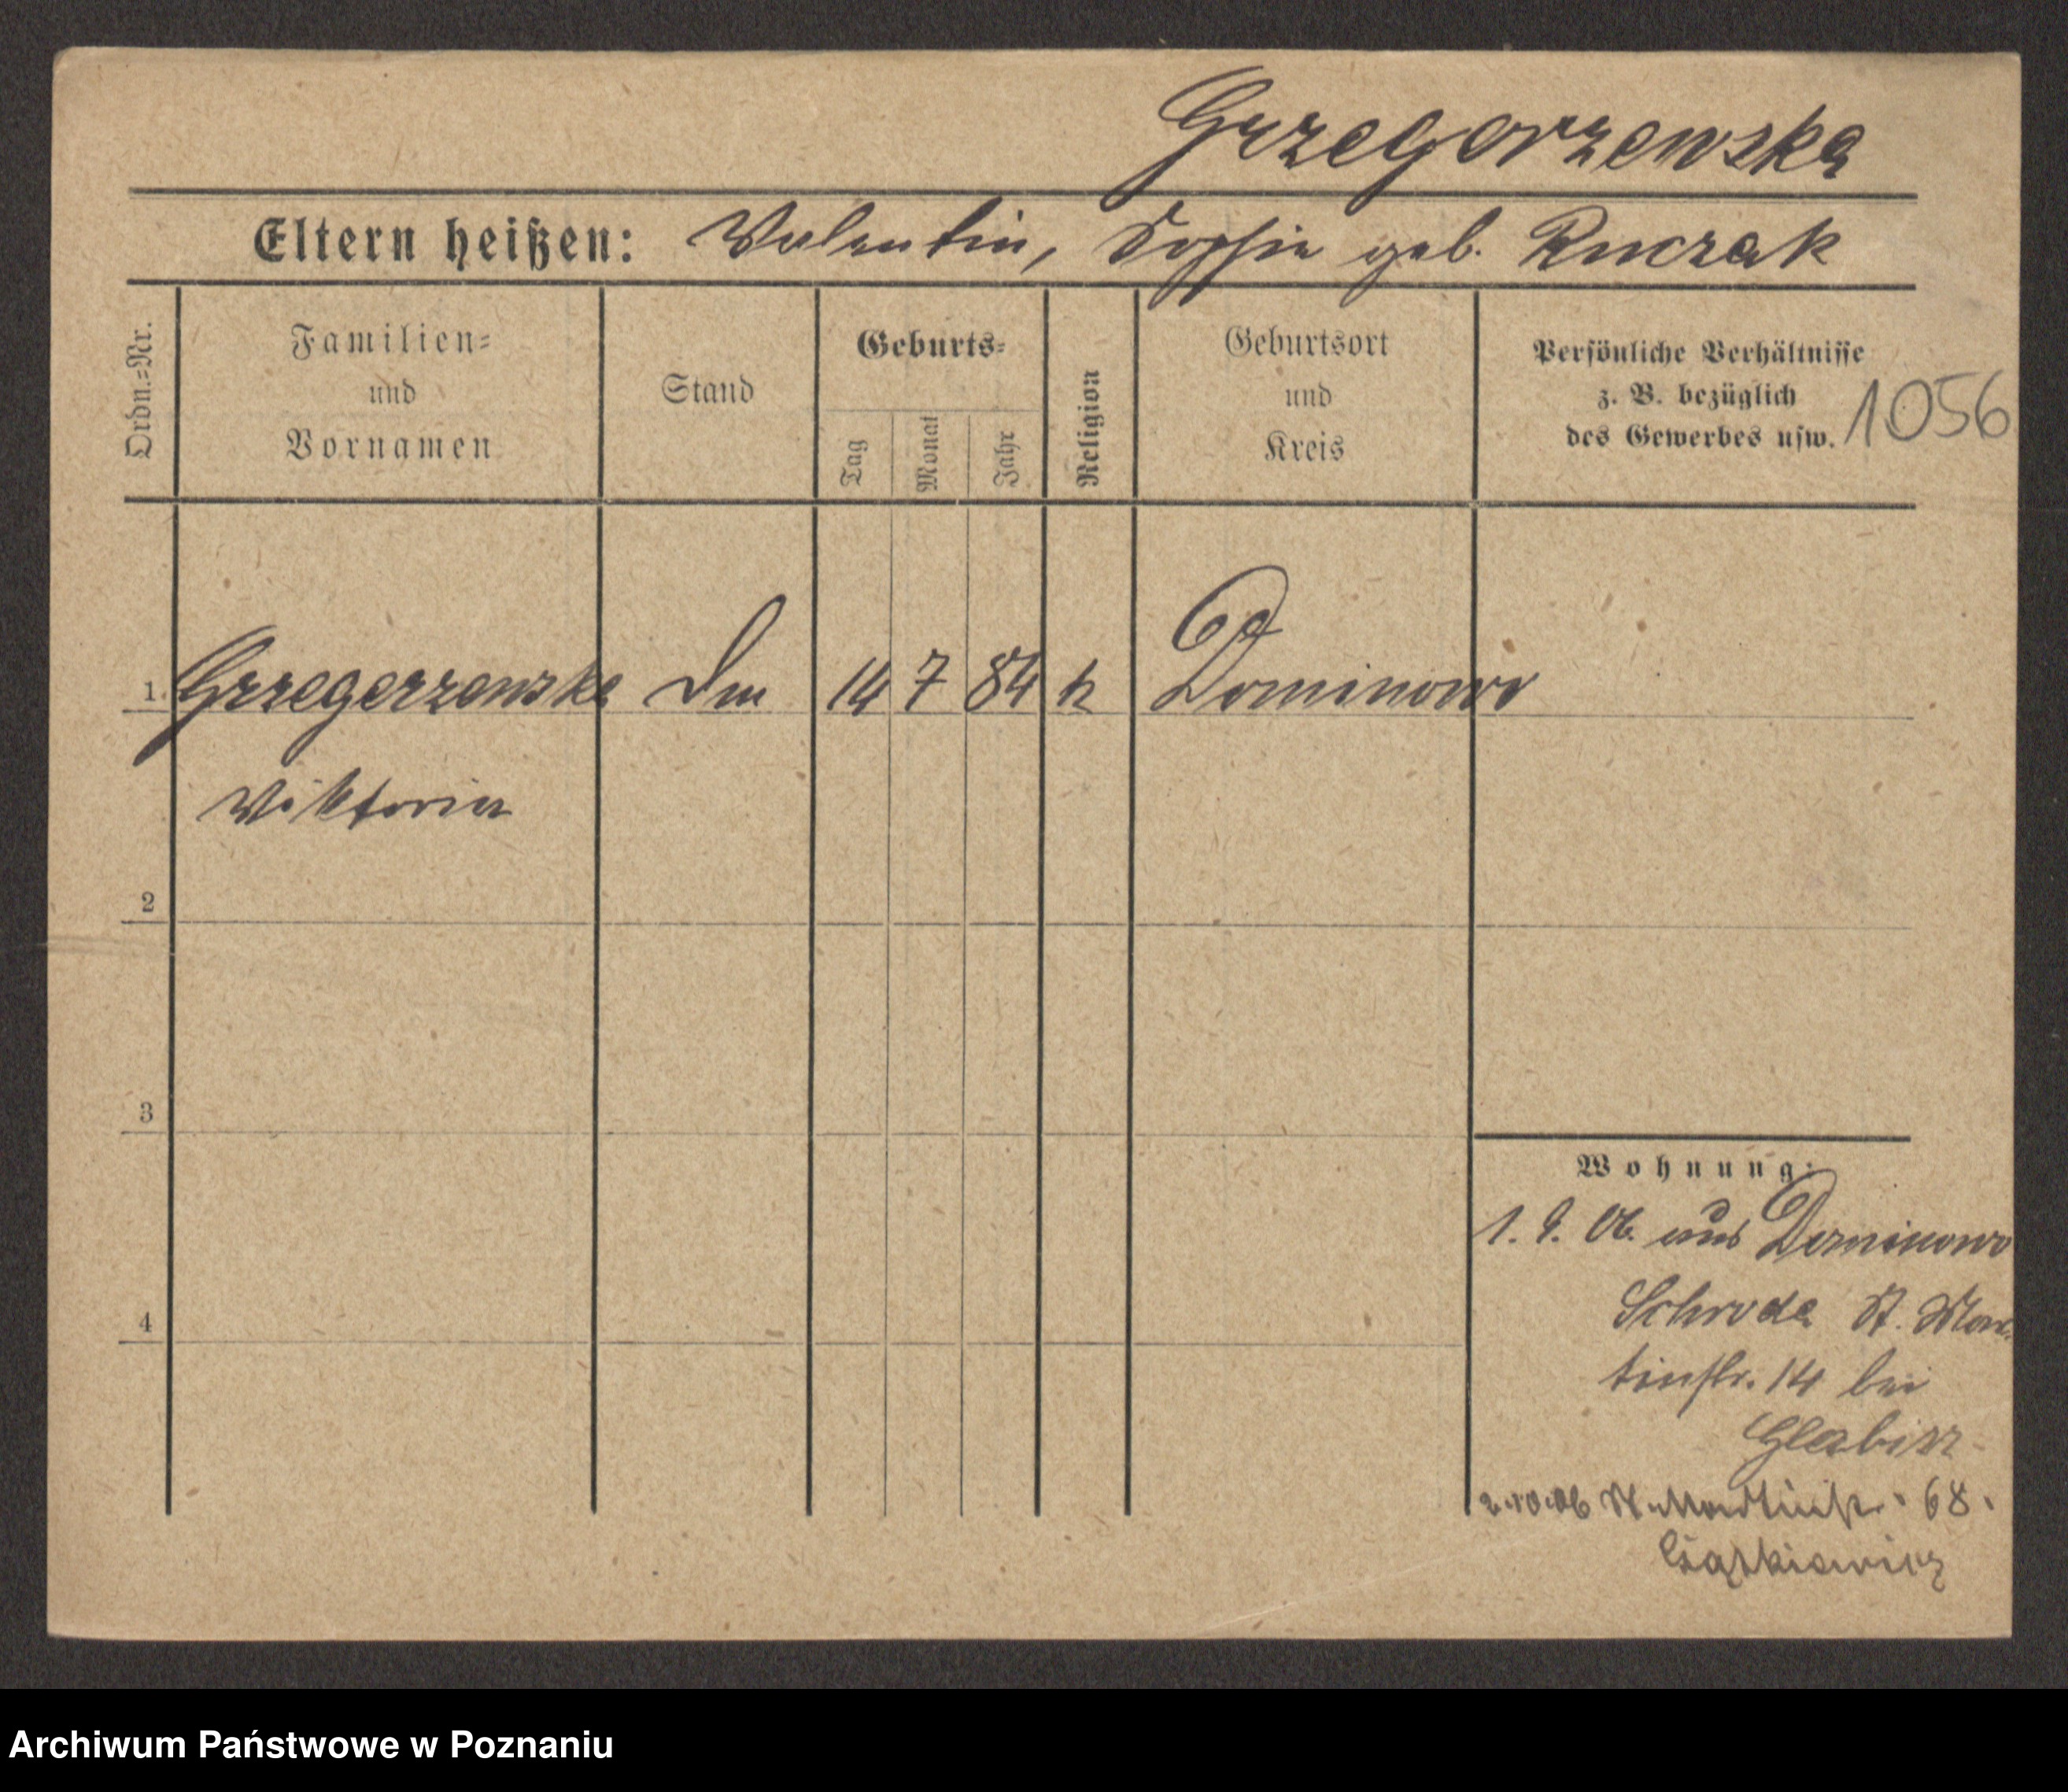 Grzegorzewska
Eltern heißen: Valentin, Sophie geb. Ruczak
Ordn.=Nr.
Familien=
und
Vornamen
Stand
Geburts=
Tag
Monat
Jahr
Religion
Geburtsort
und
Kreis
Persönliche Verhältnisse
z. B. bezüglich
des Gewerbes usw.
1056
1 Grzegorzewska 14 7 84 k Dominowo
Viktoria
2
3
4
Wohnung:
1. 9. 06. aus Dominowo
Schroda St. Mar-
tinstr. 14 bei
Glabisz
2.10.06 St. Martinstr. 68.